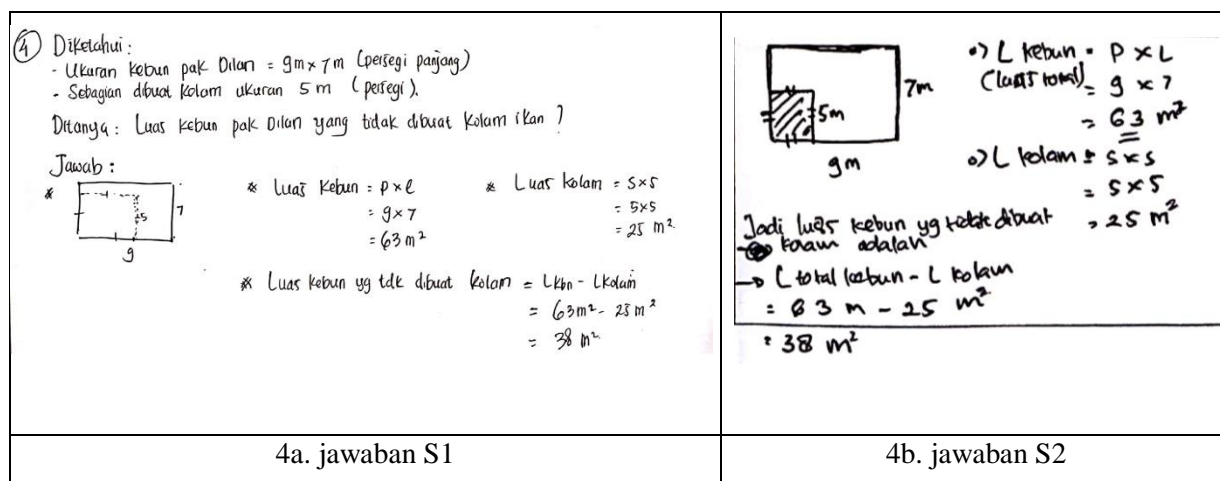 ④ Diketahui:
- Ukuran kebun pak Dilan = 9m x 7m (persegi panjang)
- Sebagian dibuat kolam ukuran 5 m (persegi).
Ditanya: Luas kebun pak Dilan yang tidak dibuat kolam ikan?
Jawab:
*
5
7
9
* Luas kebun = p x l
= 9x7
= 63 m²
* Luas kolam = s x s
= 5x5
= 25 m²
* Luas kebun yg tdk dibuat kolam = Lkbn - Lkolam
= 63m² - 25 m²
= 38 m²
4a. jawaban S1
7m
5m
9m
•) L kebun = P x L
(luas total) = 9 x 7
= 63 m²
•) L kolam = s x s
= 5 x 5
= 25 m²
Jadi luas kebun yg tidak dibuat
kolam adalah
→ L total kebun - L kolam
= 63 m - 25 m²
= 38 m²
4b. jawaban S2